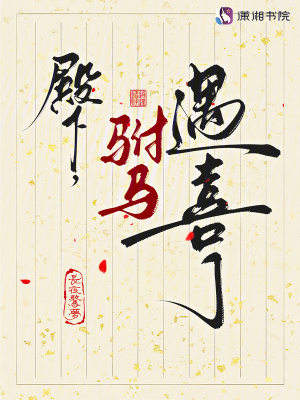 潇湘书院
殿下，
驸马
遇喜了
長夜驚夢